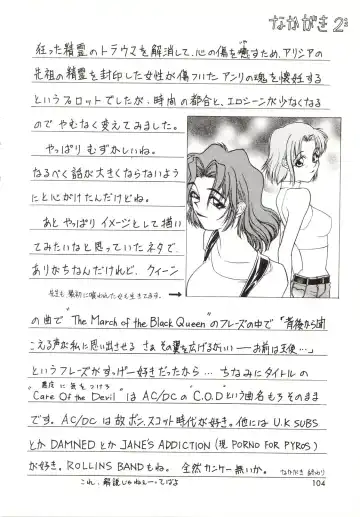 なかがき2
狂った精霊のトラウマを解消して、心の傷を癒すため、アリシアの
先祖の精霊を封印した女性が傷ついたアンリの魂を懐妊する
というプロットでしたが、時間の都合と、エロシーンが少なくなる
ので やむなく変えてみました。
やっぱり むずかしいね。
なるべく話が大きくならないよう
にと心がけたんだけどね。
あと やっぱり イメージとして描い
てみたいなと思っていたネタで、
ありがちなんだけれど、クィーン
先生も、最初に喰われた女も生きてます。→
の曲で"The March of the Black Queen"のフレーズの中で「背後から聞
こえる声が私に思い出させる さぁ その翼を広げるがいい――お前は天使…」
というフレーズがすっげー好きだったから… ちなみにタイトルの
悪魔に気をつけろ
"Care Of the Devil"は AC/DCの"C.O.D"という曲名もろそのまま
です。AC/DCは故ボン.スコット時代が好き。他には U.K SUBS
とか DAMNED とか JANE'S ADDICTION (現 PORNO FOR PYROS)
が好き。ROLLINS BANDもね。全然カンケー無いか。 なかがき 終わり
これ、解説じゃねえーってばよ
104